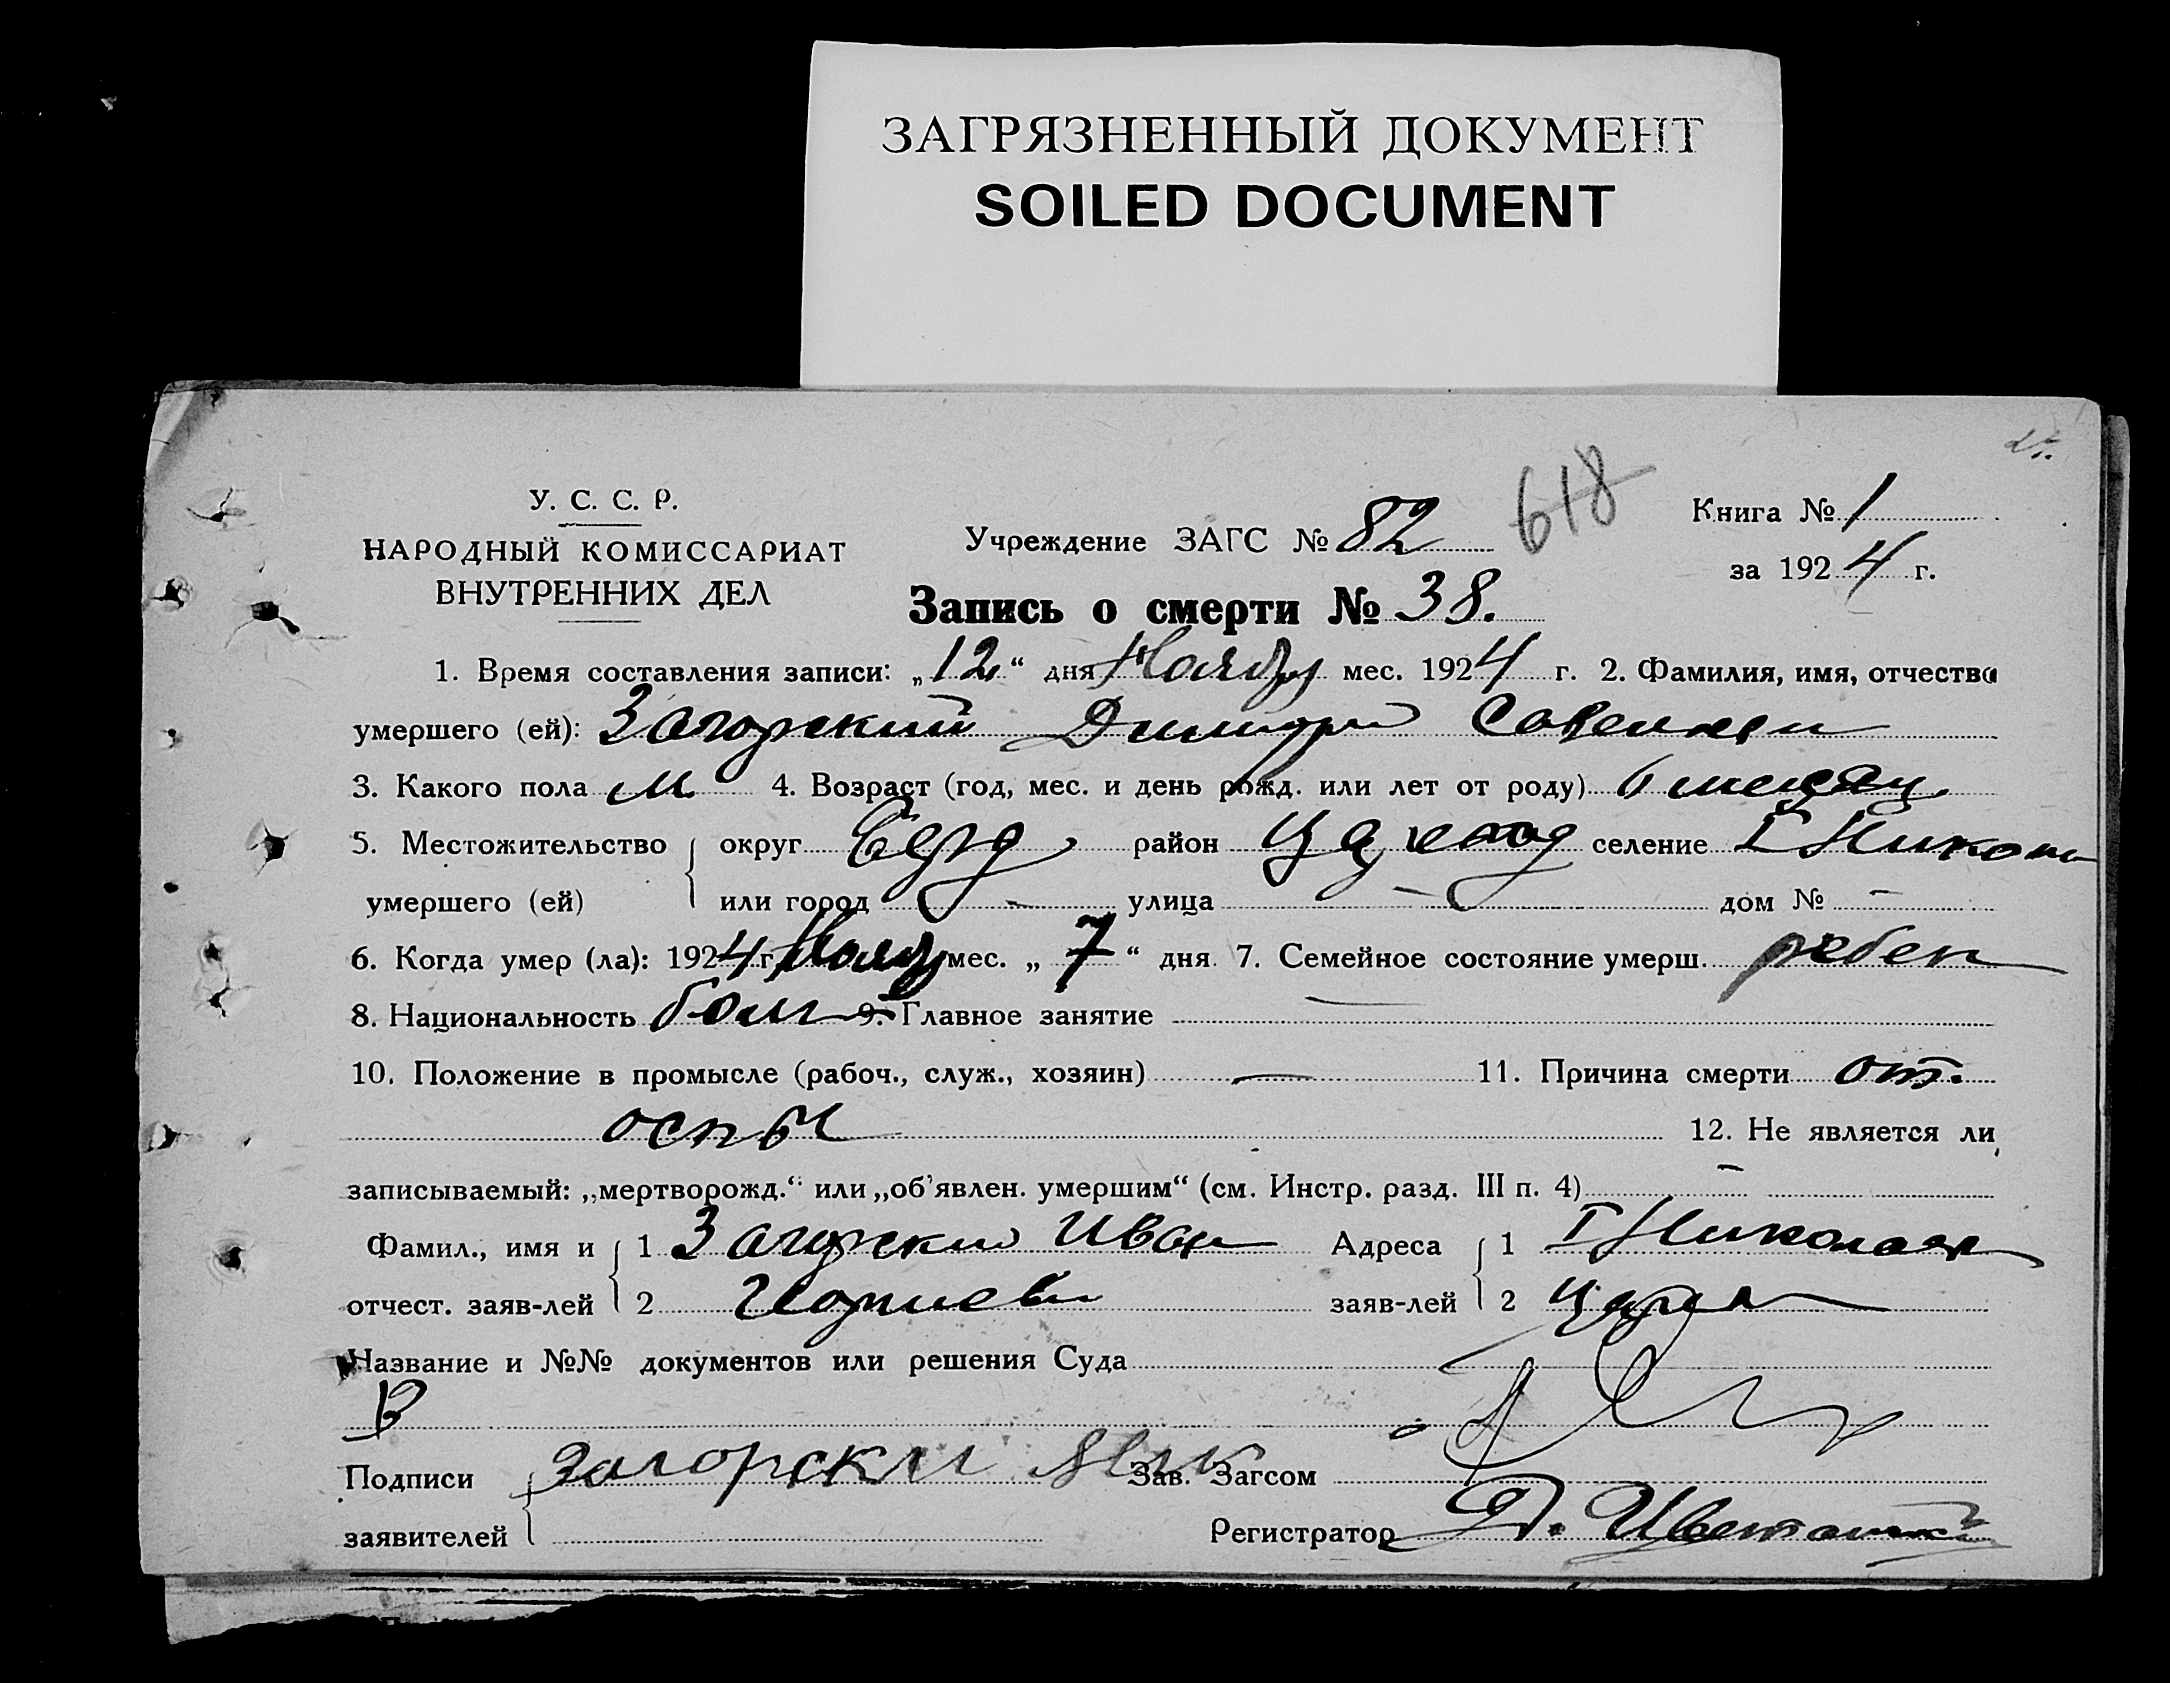 ЗАГРЯЗНЕННЫЙ ДОКУМЕНТ
SOILED DOCUMENT
У. С. С. Р.
НАРОДНЫЙ КОМИССАРИАТ
ВНУТРЕННИХ ДЕЛ
Учреждение ЗАГС № 82
618
Книга № 1
за 1924 г.
Запись о смерти № 38.
1. Время составления записи: „12“ дня Ноября мес. 1924 г. 2. Фамилия, имя, отчество
умершего (ей): Загорский Димитри
3. Какого пола М 4. Возраст (год, мес. и день рожд. или лет от роду) 6 месяц
5. Местожительство округ Берд район Цареводар селение I Никола
умершего (ей) или город — улица — дом № —
6. Когда умер (ла): 1924 г. Ноября мес. „7“ дня. 7. Семейное состояние умерш. ребен
8. Национальность болг 9. Главное занятие —
10. Положение в промысле (рабоч., служ., хозяин) — 11. Причина смерти от.
оспы 12. Не является ли
записываемый: „мертворожд.“ или „об'явлен. умершим“ (см. Инстр. разд. III п. 4) —
Фамил., имя и 1 Загорский Иван Адреса 1 I Николаев
отчест. заяв-лей 2 заяв-лей 2
Название и №№ документов или решения Суда
Подписи Загорски Зав. Загсом
заявителей Регистратор Д.